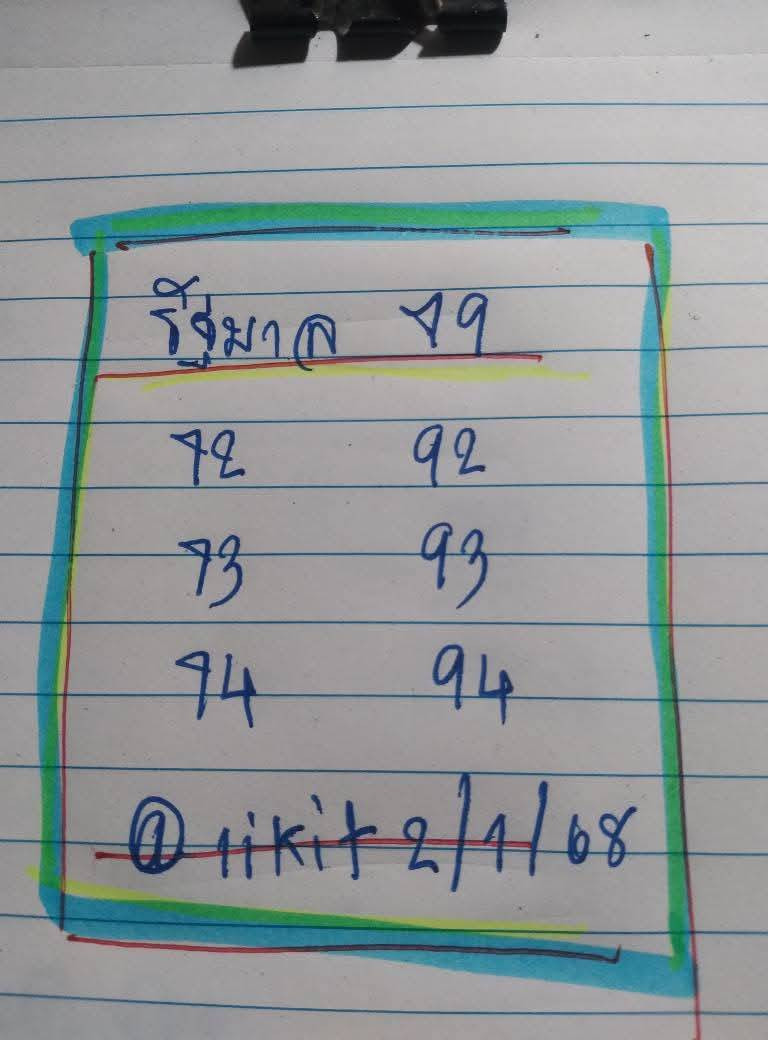 รัฐบาล 79
72 92
73 93
74 94
@ กikit 2/1/68